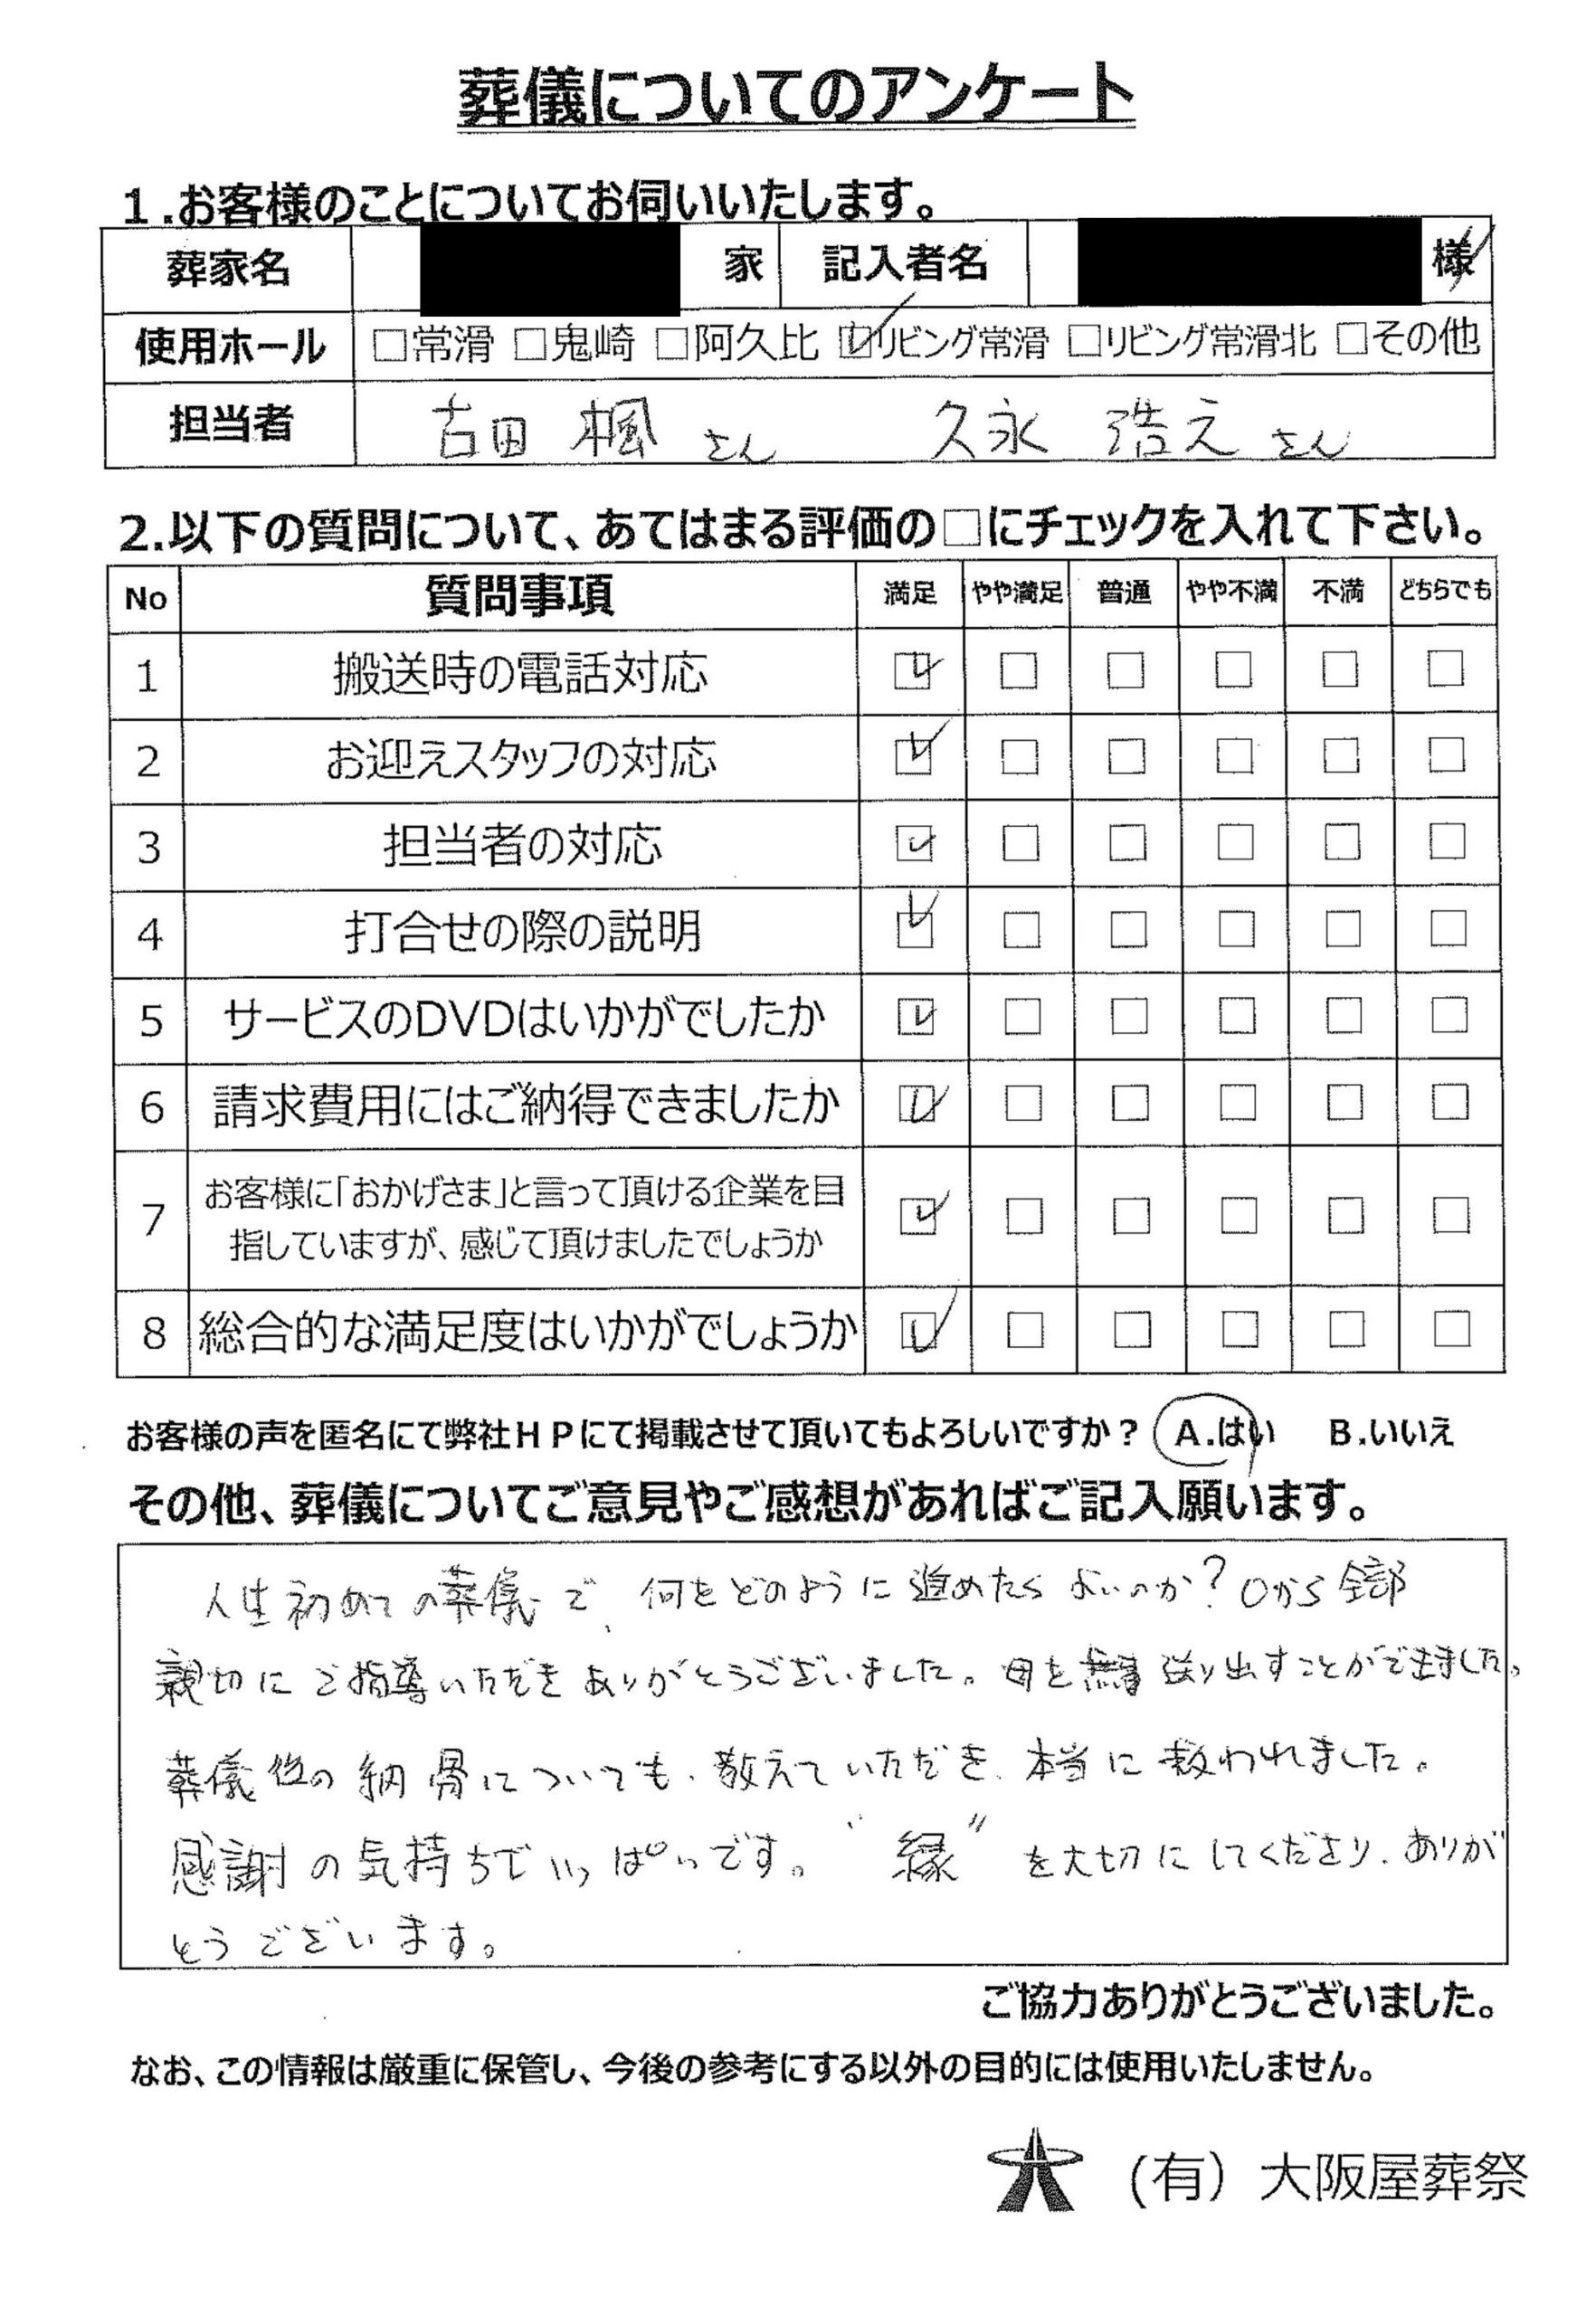 葬儀についてのアンケート
1.お客様のことについてお伺いいたします。
葬家名 家 記入者名 様
使用ホール □常滑 □鬼崎 □阿久比 ☑リビング常滑 □リビング常滑北 □その他
担当者 古田 楓さん 久永 浩えさん
2.以下の質問について、あてはまる評価の□にチェックを入れて下さい。
No 質問事項 満足 やや満足 普通 やや不満 不満 どちらでも
1 搬送時の電話対応 ☑ □ □ □ □ □
2 お迎えスタッフの対応 ☑ □ □ □ □ □
3 担当者の対応 ☑ □ □ □ □ □
4 打合せの際の説明 ☑ □ □ □ □ □
5 サービスのDVDはいかがでしたか ☑ □ □ □ □ □
6 請求費用にはご納得できましたか ☑ □ □ □ □ □
7 お客様に「おかげさま」と言って頂ける企業を目
指していますが、感じて頂けましたでしょうか ☑ □ □ □ □ □
8 総合的な満足度はいかがでしょうか ☑ □ □ □ □ □
お客様の声を匿名にて弊社HPにて掲載させて頂いてもよろしいですか？ A.はい B.いいえ
その他、葬儀についてご意見やご感想があればご記入願います。
人生初めての葬儀で、何をどのように進めたらよいのか？0から全部
親切にご指導いただきありがとうございました。母を無事送り出すことができました。
葬儀後の納骨についても、教えていただき、本当に救われました。
感謝の気持ちでいっぱいです。"縁"を大切にしてくださり、ありが
とうございます。
ご協力ありがとうございました。
なお、この情報は厳重に保管し、今後の参考にする以外の目的には使用いたしません。
(有）大阪屋葬祭